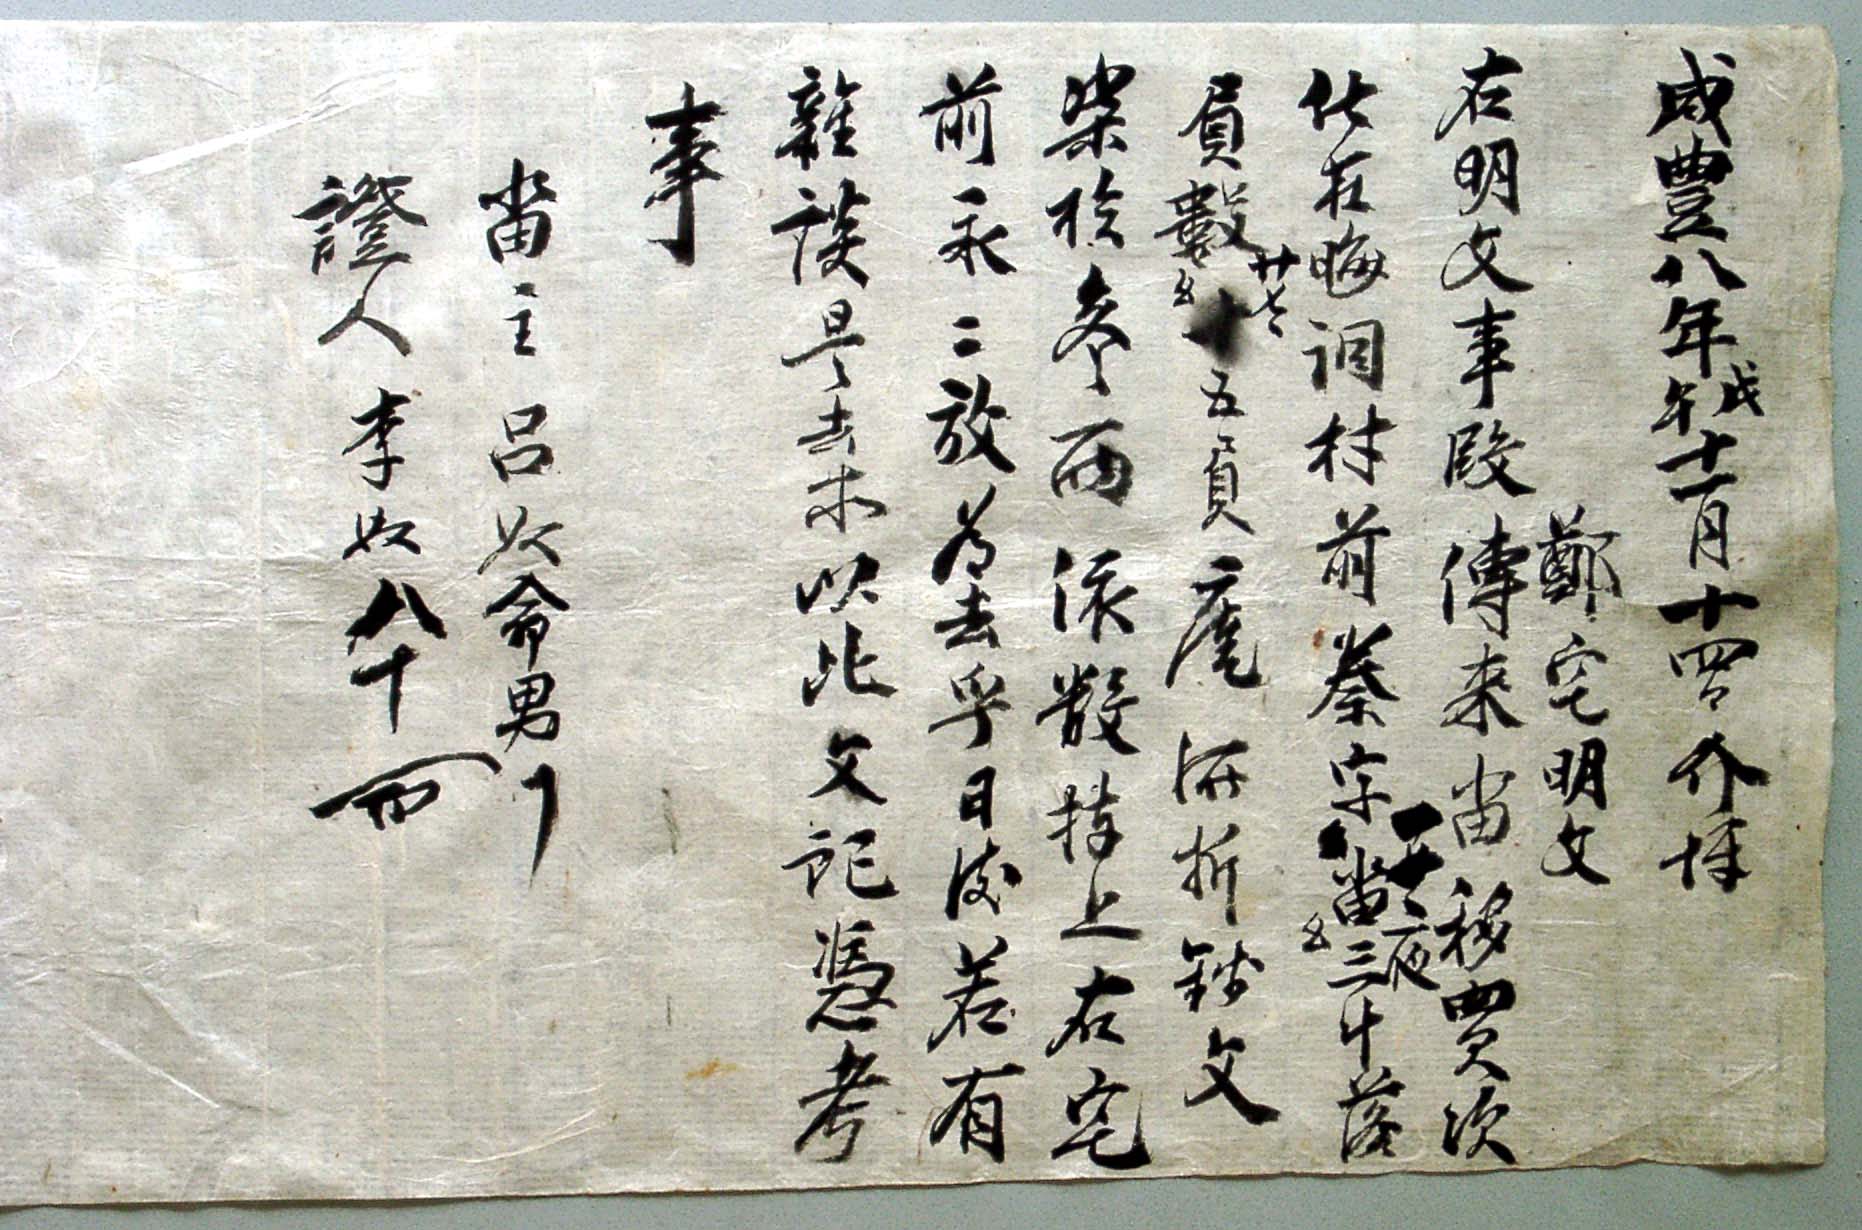 咸豊八年戊午十一月十四日 介坪
鄭宅明文
右明文事段傳来畓移買次
伏在晦洞村前秦字畓三斗落
員數廿七五員庫㐣折錢文
柒拾參両依數捧上右宅
前永永放賣爲去乎日後若有
雜談是去等以此文記憑考
事
畓主 呂奴命男
證人 李奴八十